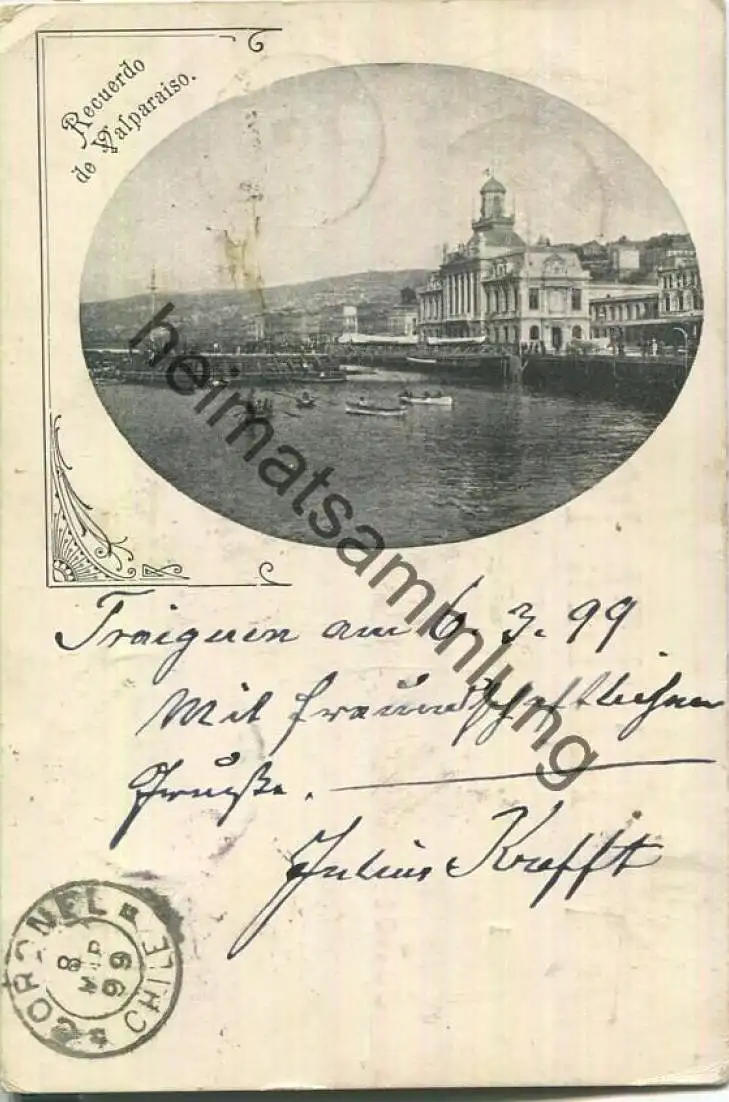 Recuerdo
de Valparaiso.
heimatsammlung
Traiguen am 6. 3. 99
Mit freundschaftlichem
Grusse.
Julius Krafft
CORONEL
CHILE
8
99